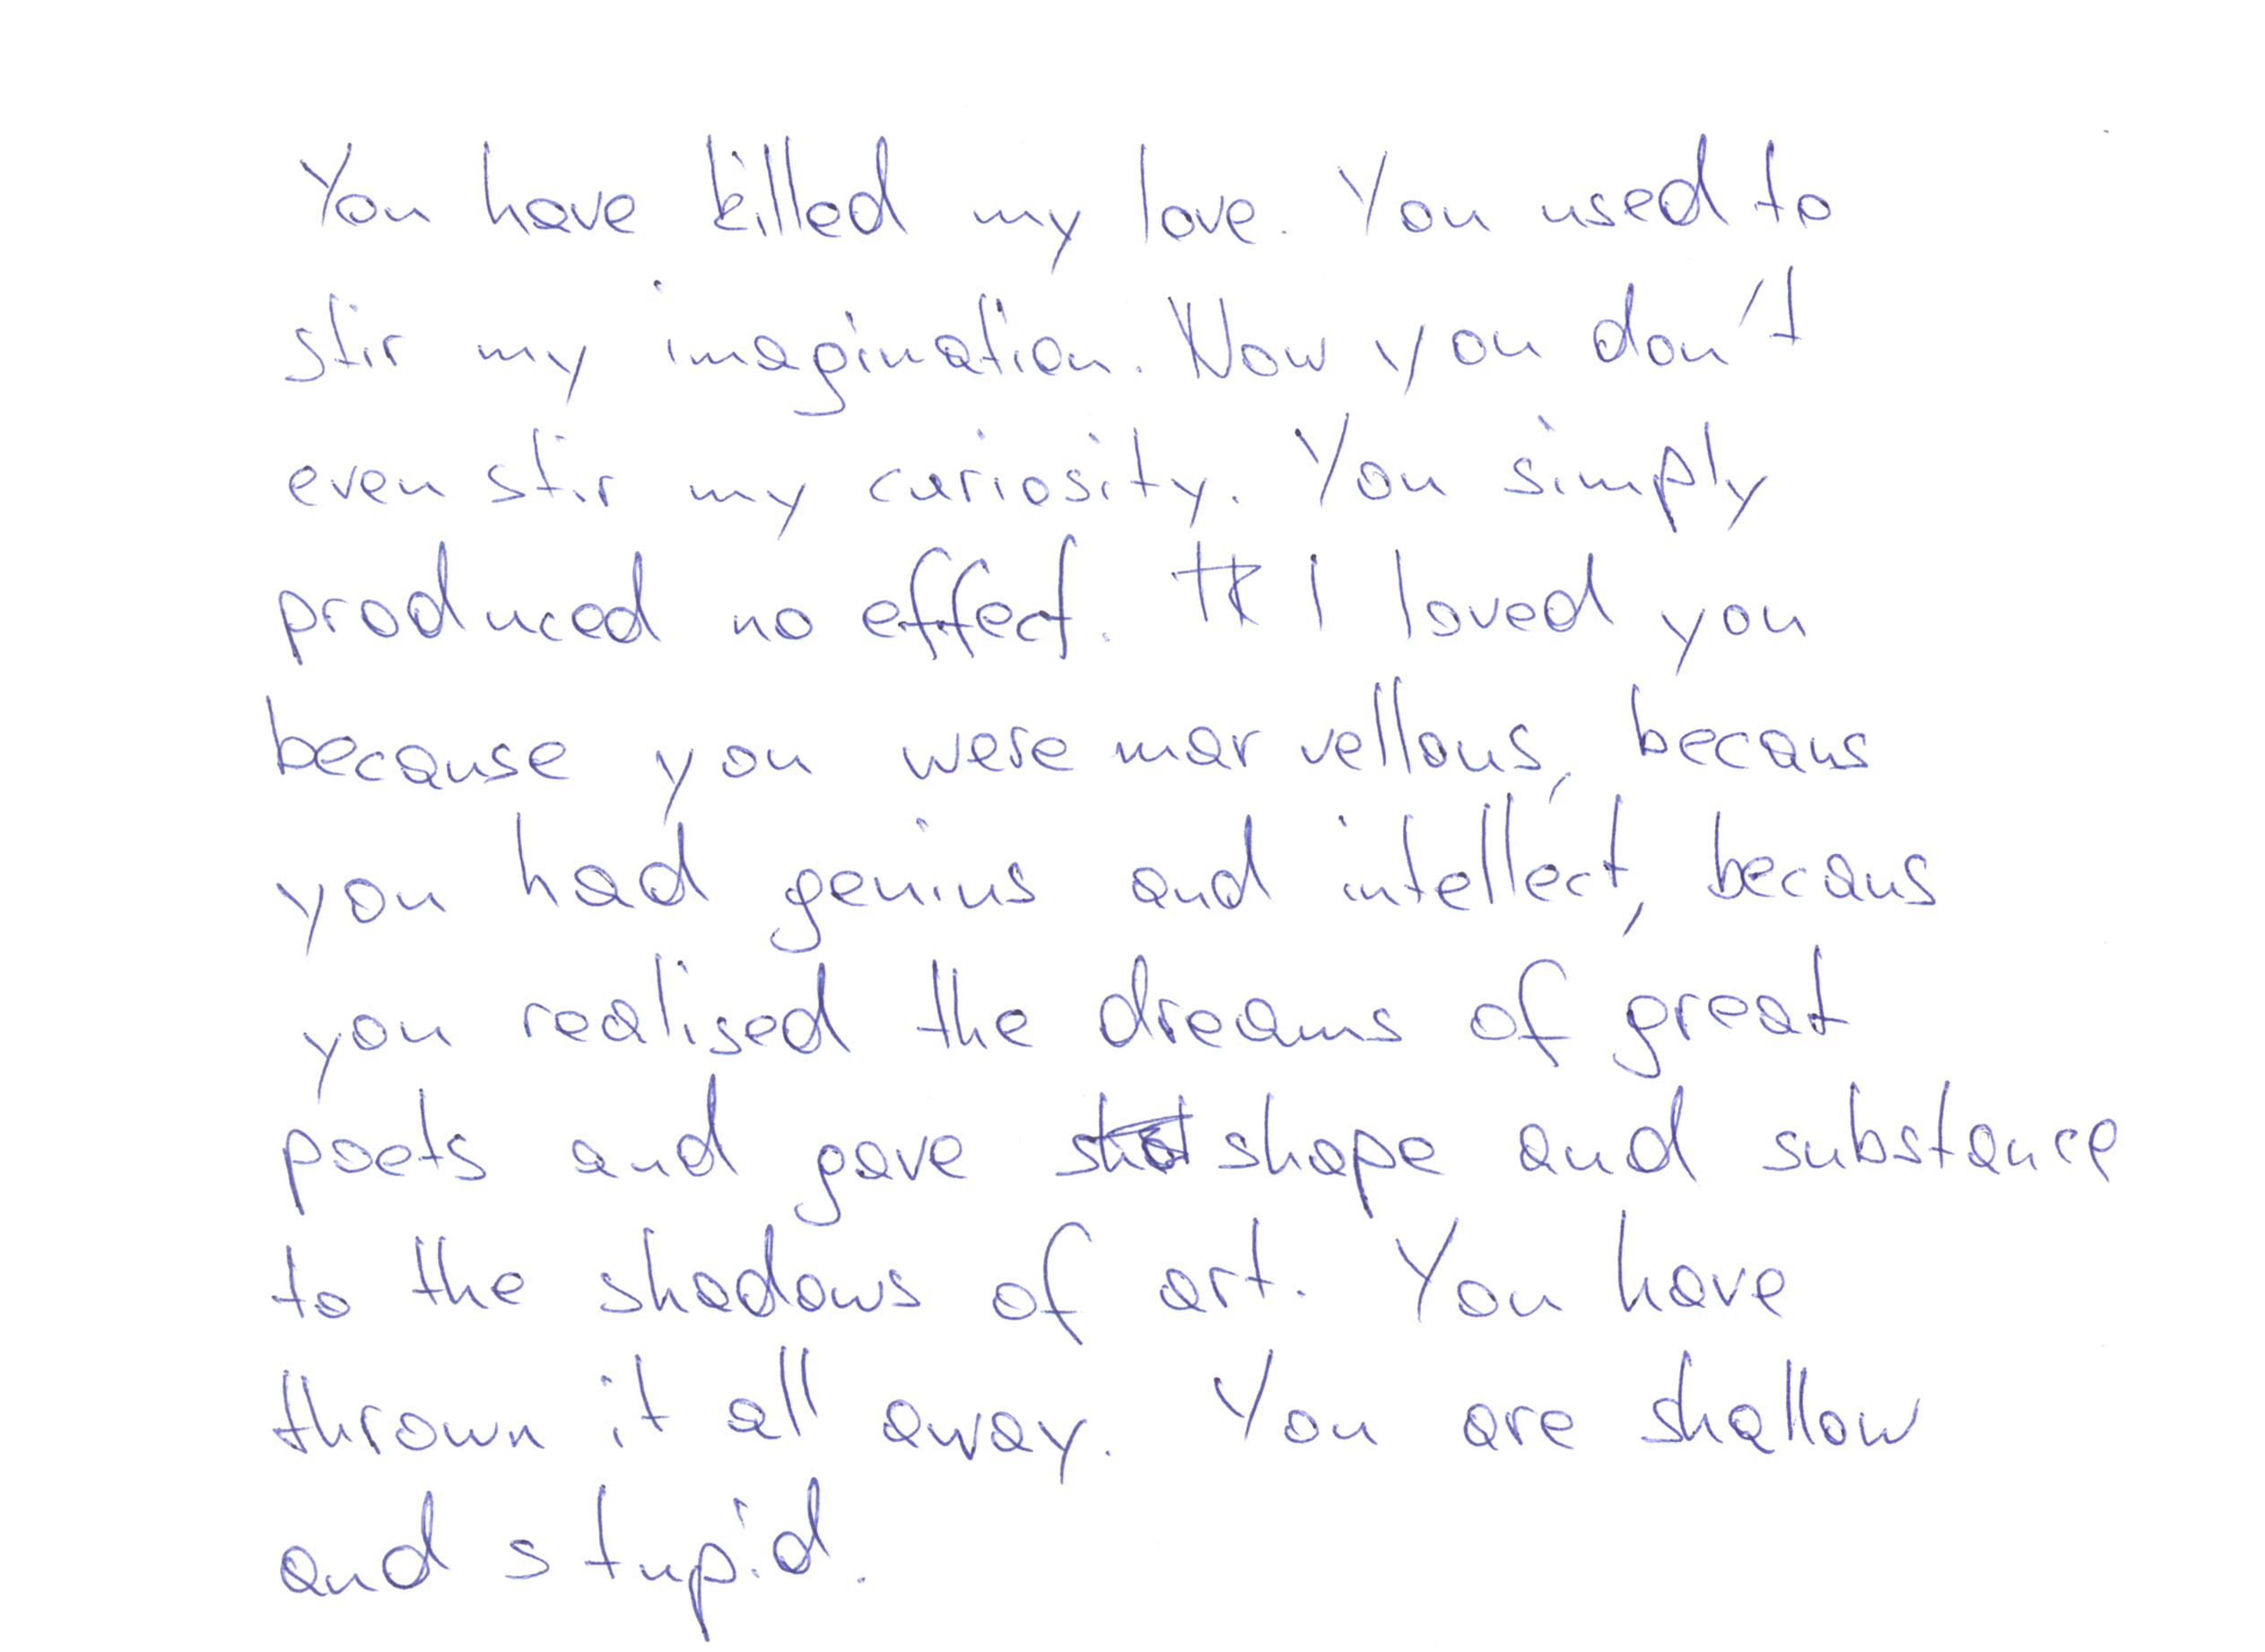 You have killed my love. You used to
stir my imagination. Now you don't
even stir my curiosity. You simply
produced no effect. I loved you
because you were marvellous, becaus
you had genius and intellect, becaus
you realised the dreams of great
poets and gave shape and substance
to the shadows of art. You have
thrown it all away. You are shallow
and stupid.